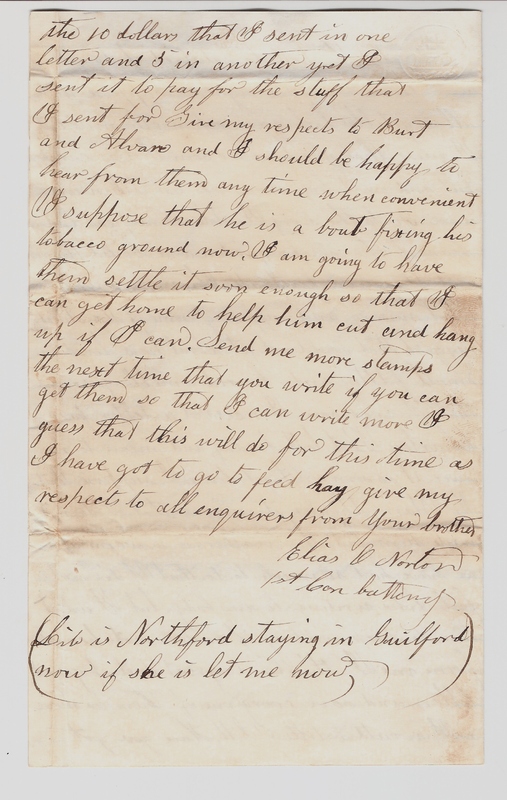 the 10 dollars that I sent in one
letter and 5 in another yet I
sent it to pay for the stuff that
I sent for Give my respects to Burt
and Alvan and I should be happy to
hear from them any time when convenient
I suppose that he is a bout fixing his
tobacco ground now. I am going to have
them settle it soon enough so that I
can get home to help him cut and hang
up if I can. Send me more stamps
the next time that you write if you can
get them so that I can write more I
guess that this will do for this time as
I have got to go to feed hay give my
respects to all enquirers from your brother
Elias C Norton
1st Con battery
(Lib is Northford staying in Guilford
now if she is let me now)